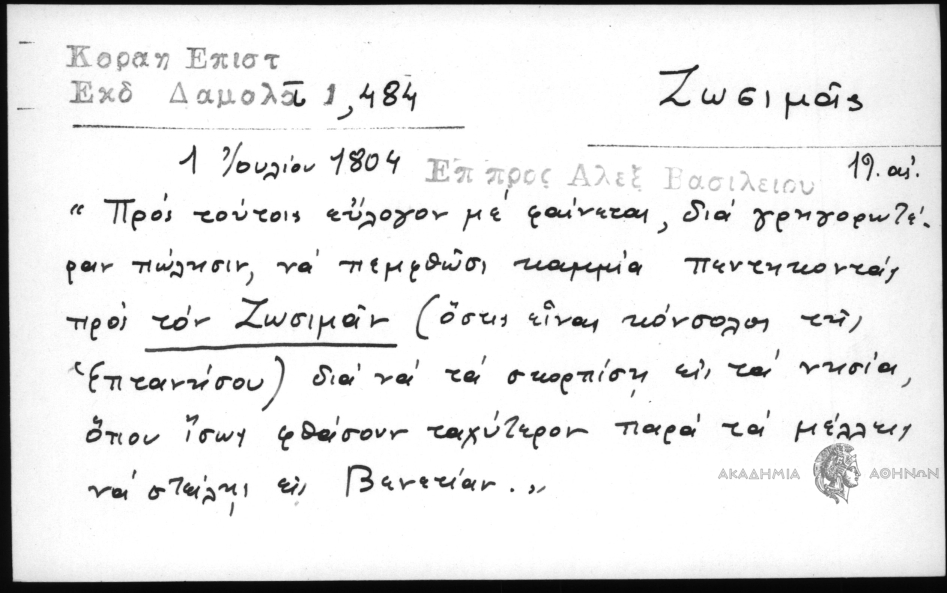 Κοραη Επιστ
Εκδ Δαμαλᾶ 1,484
Ζωσιμᾶς
1 Ἰουλίου 1804 Επ προς Αλεξ Βασιλειου 19. αἰ.
"Πρός τούτοις εὔλογον μέ φαίνεται, διά γρηγορωτέ-
ραν πώλησιν, νά πεμφθῶσι καμμία πεντηκοντάς
πρός τόν Ζωσιμᾶν (ὅστις εἶναι κόνσολος τῆς
Ἑπτανήσου) διά νά τά σκορπίσῃ εἰς τά νησία,
ὅπου ἴσως φθάσουν ταχύτερον παρά τά μέλλῃς
νά στείλῃς εἰς Βενετίαν."
ΑΚΑΔΗΜΙΑ ΑΘΗΝΩΝ